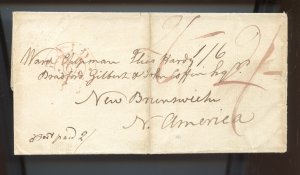 Ward Chipman Thos Hardy 1/6
Bradford Gilbert & John Coffin Esqrs
New Brunswick
N. America
Post paid 2/